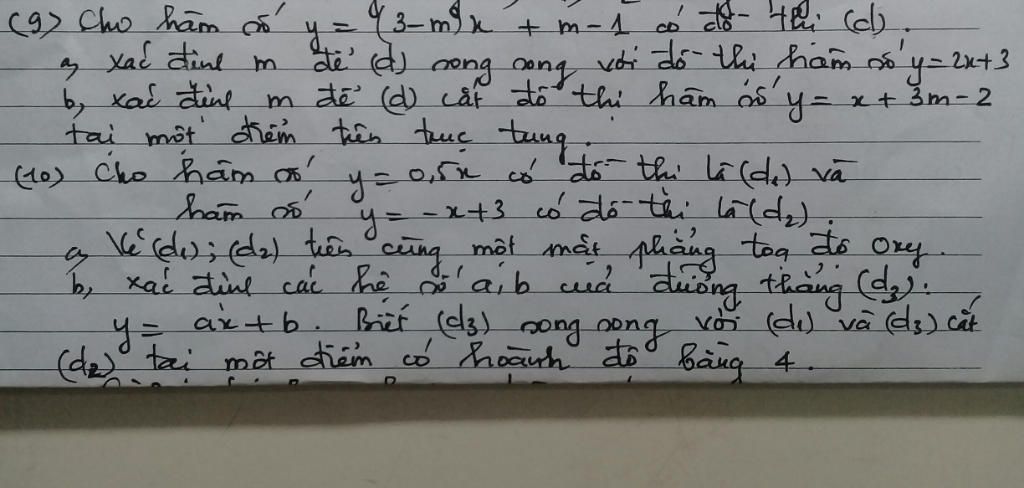 (9) Cho hàm số y = (3-m)x + m - 1 có đồ thị (d).
a, xác định m để (d) song song với đồ thị hàm số y = 2x+3
b, xác định m để (d) cắt đồ thị hàm số y = x + 3m - 2
tại một điểm trên trục tung.
(10) Cho hàm số y = 0,5x có đồ thị là (d₁) và
hàm số y = -x+3 có đồ thị là (d₂).
a, Vẽ (d₁); (d₂) trên cùng một mặt phẳng toạ độ Oxy.
b, xác định các hệ số a, b của đường thẳng (d₃):
y = ax + b. Biết (d₃) song song với (d₁) và (d₃) cắt
(d₂) tại một điểm có hoành độ bằng 4.